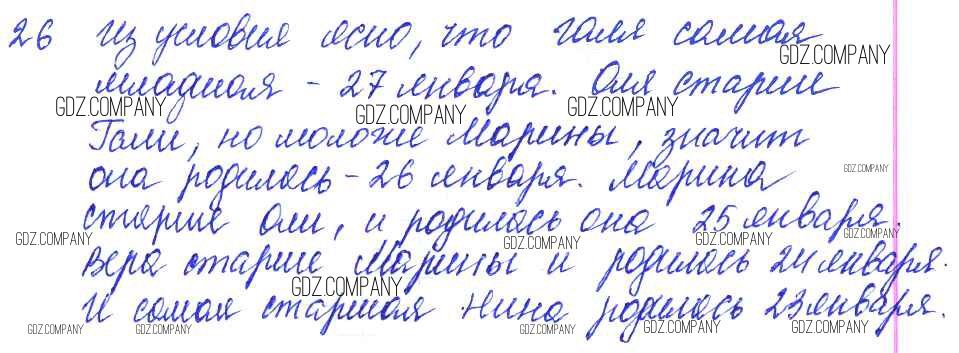 26 Из условия ясно, что Галя самая
GDZ.COMPANY
младшая - 27 января. Оля старше
GDZ.COMPANY GDZ.COMPANY GDZ.COMPANY
Гали, но моложе Марины, значит
она родилась - 26 января. Марина
GDZ.COMPANY
старше Оли, и родилась она 25 января.
GDZ.COMPANY GDZ.COMPANY GDZ.COMPANY
Вера старше Марины и родилась 24 января.
GDZ.COMPANY
И самая старшая Нина родилась 23 января.
GDZ.COMPANY GDZ.COMPANY GDZ.COMPANY GDZ.COMPANY GDZ.COMPANY